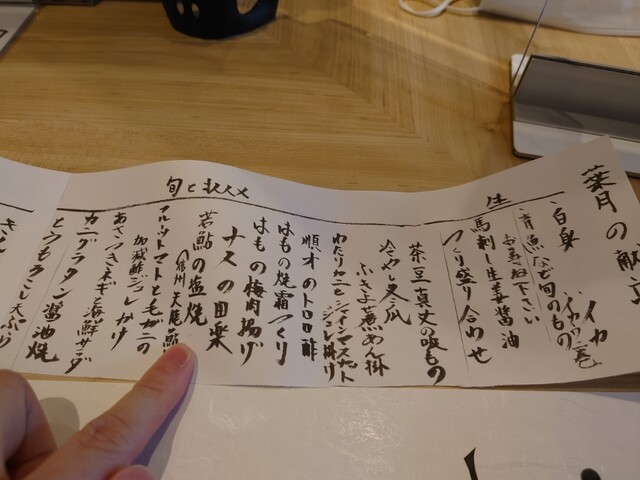 葉月の献立
生
白身 イカ
青魚など旬のもの
お尋ね下さい
馬刺し生姜醤油
つくり盛り合わせ
旬とおススメ
茶豆真丈の吸もの
冷やし冬瓜
ふきよせ煮あん掛
わたりカニとシャインマスカット
ジュレ掛け
順才のトロロ酢
はもの焼霜つくり
はもの梅肉揚げ
ナスの田楽
若鮎の塩焼
フルーツトマトと毛ガニの
加減酢ジュレかけ
あさつきネギと海鮮サラダ
カニグラタン醤油焼
とうもろこし天ぷら